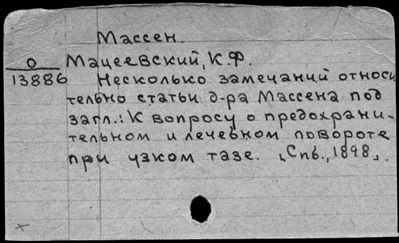 Массен.
О
13886
Мацеевский, К.Ф.
Несколько замечаний относи
тельно статьи д-ра Массена под
загл.: К вопросу о предохрани-
тельном и лечебном повороте
при узком тазе. [Спб., 1898].